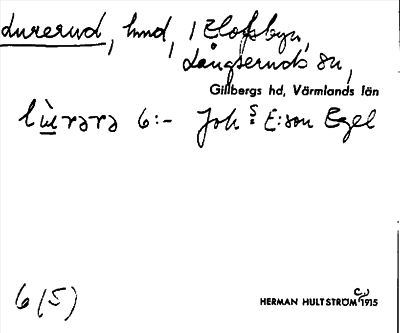 Lurerud, hmd, i Elofsbyn,
Långseruds sn,
Gillbergs hd, Värmlands län
6:- Joh⁵: E:son Egel
6 (5)
HERMAN HULTSTRÖM 1915